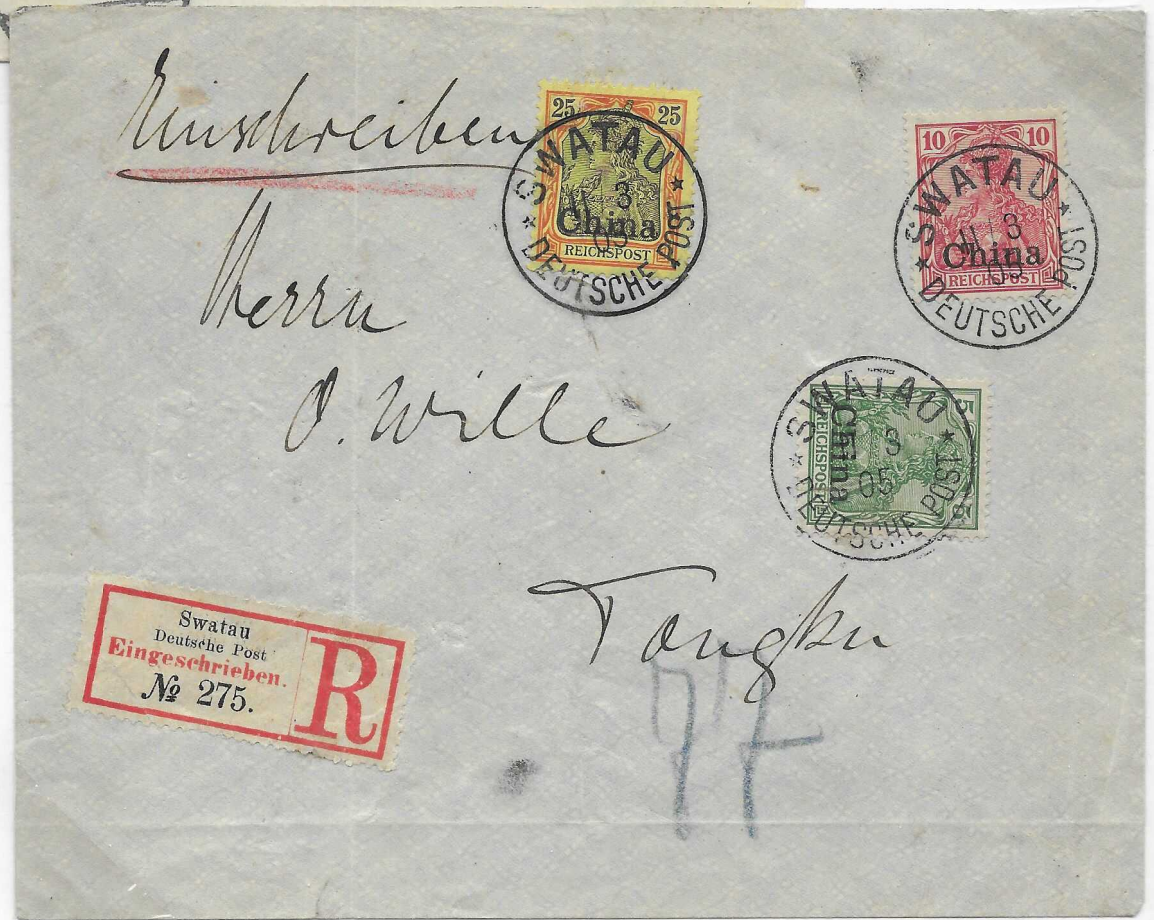 Einschreiben
25 25
China
REICHSPOST
SWATAU
3
05
* DEUTSCHE POST *
10 10
China
REICHSPOST
SWATAU
11 3
05
* DEUTSCHE POST *
Herrn
O. Wille
5 5
China
REICHSPOST
SWATAU
3
05
* DEUTSCHE POST *
Tongku
Swatau
Deutsche Post
Eingeschrieben.
№ 275.
R